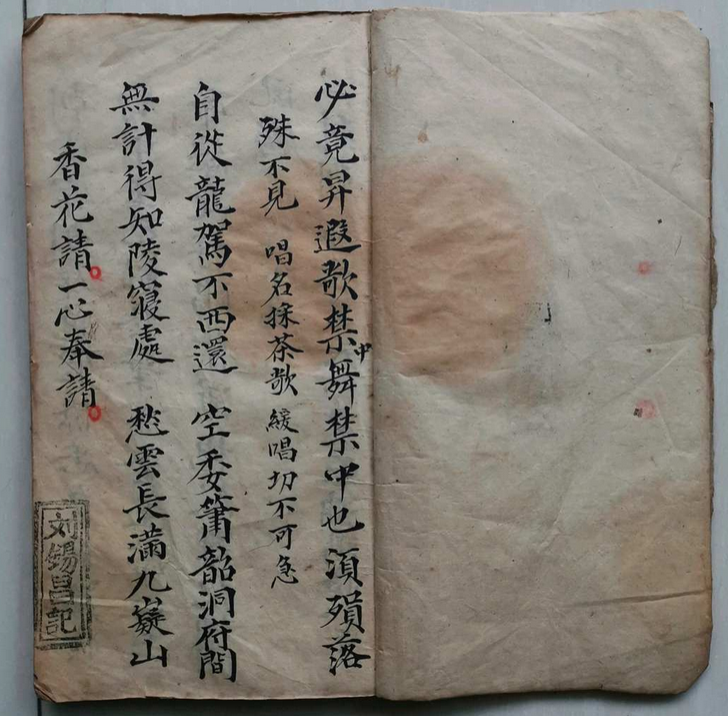 必竟昇遐歌禁中舞禁中也須殞落
殊不見 唱名採茶歌 緩唱切不可急
自從龍駕不西還 空委簫韶洞府間
無計得知陵寢處 愁雲長滿九嶷山
香花請。一心奉請。
刘錫昌記